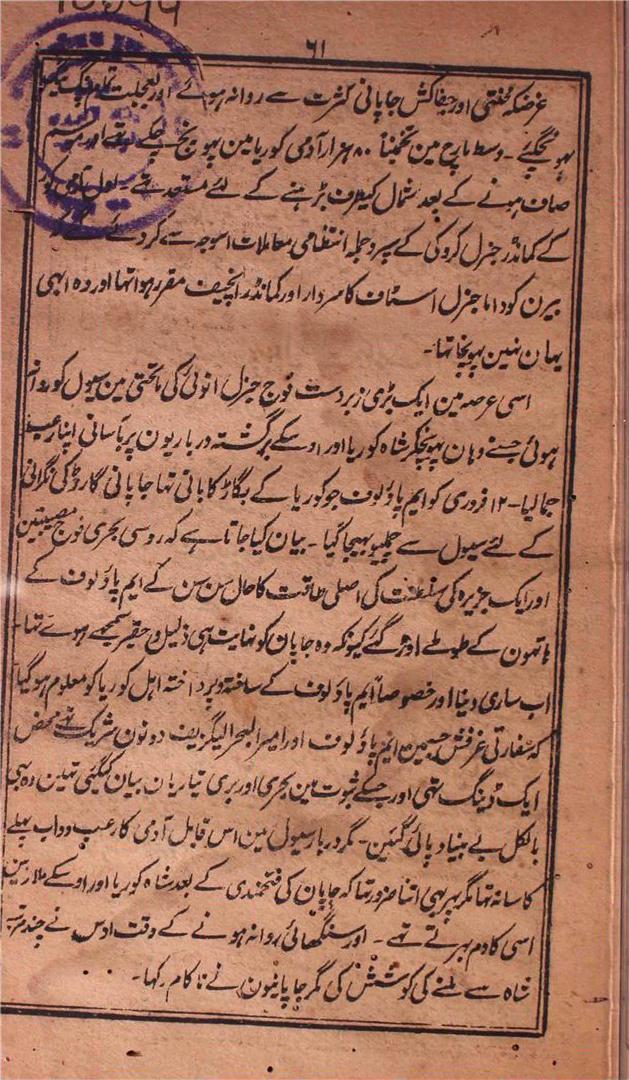 ۶۱
غرضکہ محنتی اور جفاکش جاپانی کثرت سے روانہ ہوئے اور بعجلت تمام پنگ
پہونچگئے۔ وسط مارچ مین تخمیناً ۸۰ ہزار آدمی کوریا مین پہونچ چکے تھے اور
صاف ہونے کے بعد شمال کیطرف بڑہنے کے لئے مستعد تھے۔
کے کمانڈر جنرل کروکی کے سپرد جملہ انتظامی معاملات اسوجہ سے کردئے گئے
بیرن کوداما جنرل اسٹاف کا سردار اور کمانڈر انچیف مقرر ہوا تہا اور وہ ابہی
یہان نہین پہونچا تہا۔
اسی عرصہ مین ایک بڑی زبردست فوج جنرل انوئی کی ماتحتی مین سیول کو روانہ
ہوئی جسنے وہان پہونچکر شاہ کوریا اور اوسکے برگشتہ درباریون پر بآسانی اپنا رعب
جمالیا۔ ۱۲ فروری کو ایم پاؤلوف جو کوریا کے بگاڑ کا بانی تہا جاپانی گارڈ کی نگرانی
کے لئے سیول سے چمپلپو بہیجا گیا۔ بیان کیا جاتا ہے کہ روسی بحری فوج مصیبتین
اور ایک جزیرہ کی سلطنت کی اصلی طاقت کا حال سن سن کے ایم پاؤلوف کے
ہاتہون کے طوطے اوڑ گئے کیونکہ وہ جاپان کو نہایت ہی ذلیل و حقیر سمجھے ہوئے تہا۔
اب ساری دنیا اور خصوصاً ایم پاؤلوف کے ساختہ و پرداختہ اہل کوریا کو معلوم ہوگیا
کہ سفارتی غرفش جسمین ایم پاؤلوف اور امیر البحر الیگزیف دونون شریک تھے محض
ایک ڈینگ تہی اور جسکے ثبوت مین بحری اور بری تیاریان بیان کیگئی تہین وہ بہی
بالکل بے بنیاد پائی گئین۔ مگر دربار سیول مین اس قابل آدمی کا رعب و داب پہلے
کا سا نہ تہا مگر پہر بہی اتنا ضرور تہا کہ جاپان کی فتحمندی کے بعد شاہ کوریا اور اوسکے ملازمین
اسی کا دم بہرتے تھے۔ اور سنگہائی روانہ ہونے کے وقت اوس نے چند مرتبہ
شاہ سے ملنے کی کوشش کی مگر جاپانیون نے ناکام رکہا۔